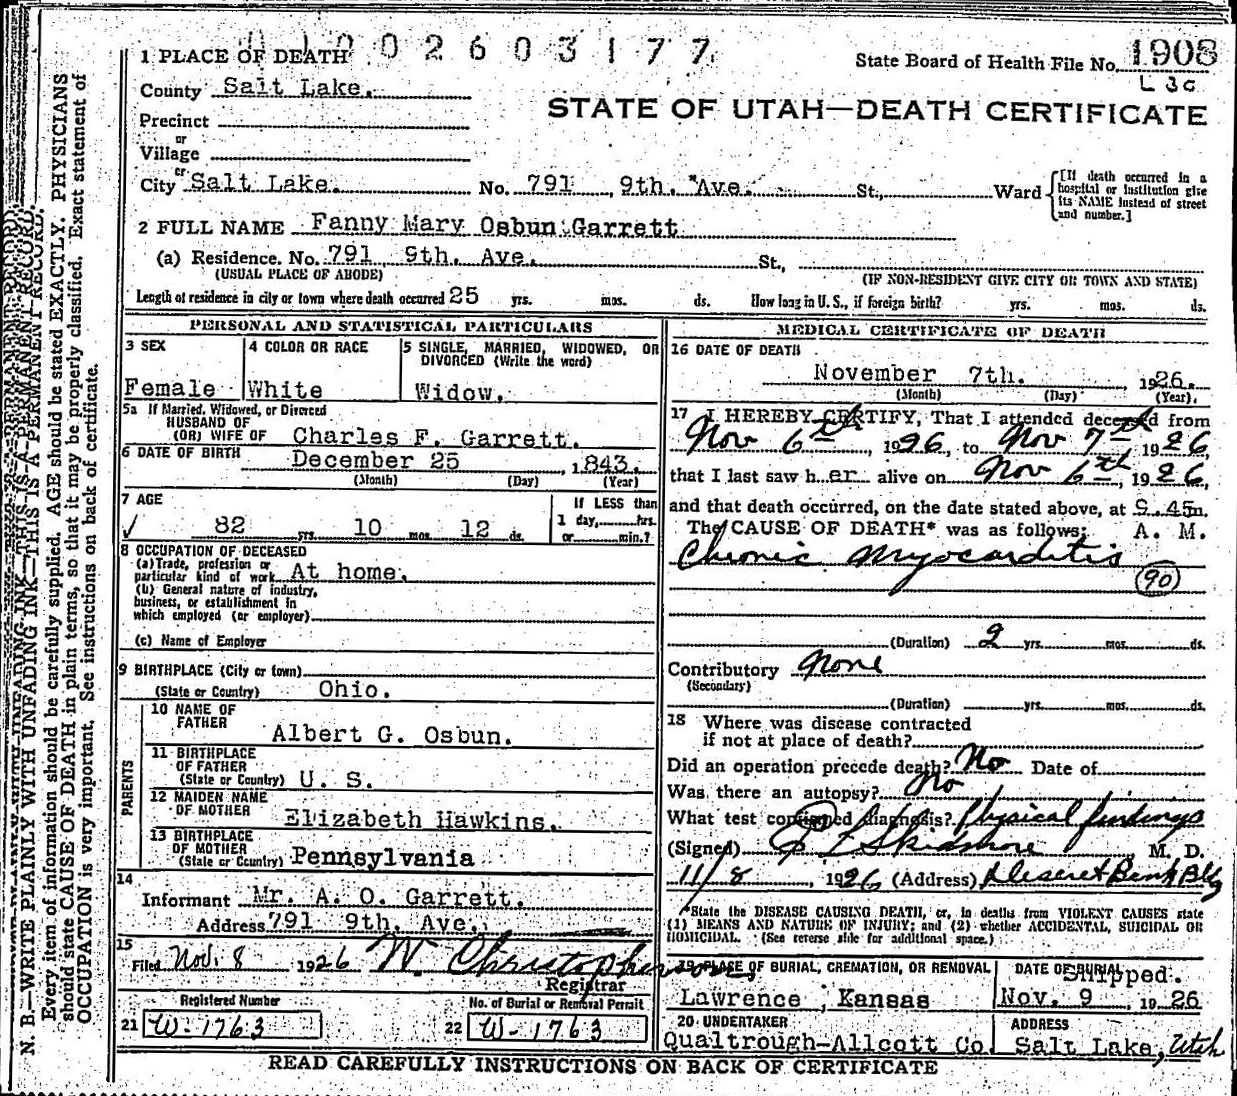 11002603177
1 PLACE OF DEATH
State Board of Health File No. 1908
County Salt Lake.
L 3c
STATE OF UTAH—DEATH CERTIFICATE
Precinct
or
Village
or
City Salt Lake. No. 791 9th. Ave. St., Ward
[If death occurred in a hospital or institution give its NAME instead of street and number.]
2 FULL NAME Fanny Mary Osbun Garrett
(a) Residence. No. 791 9th. Ave. St.,
(USUAL PLACE OF ABODE) (IF NON-RESIDENT GIVE CITY OR TOWN AND STATE)
Length of residence in city or town where death occurred 25 yrs. mos. ds. How long in U. S., if foreign birth? yrs. mos. ds.
PERSONAL AND STATISTICAL PARTICULARS
3 SEX
Female
4 COLOR OR RACE
White
5 SINGLE, MARRIED, WIDOWED, OR
DIVORCED (Write the word)
Widow.
5a If Married, Widowed, or Divorced
HUSBAND OF
(OR) WIFE OF Charles F. Garrett.
6 DATE OF BIRTH December 25, 1843.
(Month) (Day) (Year)
7 AGE
82 yrs. 10 mos. 12 ds.
If LESS than
1 day, hrs.
or min.?
8 OCCUPATION OF DECEASED
(a) Trade, profession or
particular kind of work At home.
(b) General nature of industry,
business, or establishment in
which employed (or employer)
(c) Name of Employer
9 BIRTHPLACE (City or town)
(State or Country) Ohio.
PARENTS
10 NAME OF
FATHER
Albert G. Osbun.
11 BIRTHPLACE
OF FATHER
(State or Country) U. S.
12 MAIDEN NAME
OF MOTHER
Elizabeth Hawkins.
13 BIRTHPLACE
OF MOTHER
(State or Country) Pennsylvania
14
Informant Mr. A. O. Garrett.
Address 791 9th. Ave.
15
Filed Nov. 8 1926 W. Christopherson
Registrar
Registered Number
21 W-1763
No. of Burial or Removal Permit
22 W-1763
MEDICAL CERTIFICATE OF DEATH
16 DATE OF DEATH
November 7th. 1926.
(Month) (Day) (Year).
17 I HEREBY CERTIFY, That I attended deceased from
Nov 6th, 1926, to Nov 7th 1926,
that I last saw her alive on Nov 6th, 1926,
and that death occurred, on the date stated above, at 9.45m.
The CAUSE OF DEATH* was as follows: A. M.
Chronic Myocarditis
90
(Duration) 2 yrs. mos. ds.
Contributory None
(Secondary)
(Duration) yrs. mos. ds.
18 Where was disease contracted
if not at place of death?
Did an operation precede death? No Date of
Was there an autopsy? No
What test confirmed diagnosis? Physical findings
(Signed) Skidmore, M. D.
11/8, 1926 (Address) Deseret Bank Bldg
*State the DISEASE CAUSING DEATH, or, in deaths from VIOLENT CAUSES state
(1) MEANS AND NATURE OF INJURY; and (2) whether ACCIDENTAL, SUICIDAL OR
HOMICIDAL. (See reverse side for additional space.)
19 PLACE OF BURIAL, CREMATION, OR REMOVAL
Lawrence, Kansas
DATE OF BURIAL
Shipped.
Nov. 9, 1926
20 UNDERTAKER
Qualtrough-Allcott Co.
ADDRESS
Salt Lake, Utah
READ CAREFULLY INSTRUCTIONS ON BACK OF CERTIFICATE
N. B.—WRITE PLAINLY WITH UNFADING INK—THIS IS A PERMANENT RECORD.
Every item of information should be carefully supplied. AGE should be stated EXACTLY. PHYSICIANS
should state CAUSE OF DEATH in plain terms, so that it may be properly classified. Exact statement of
OCCUPATION is very important. See instructions on back of certificate.